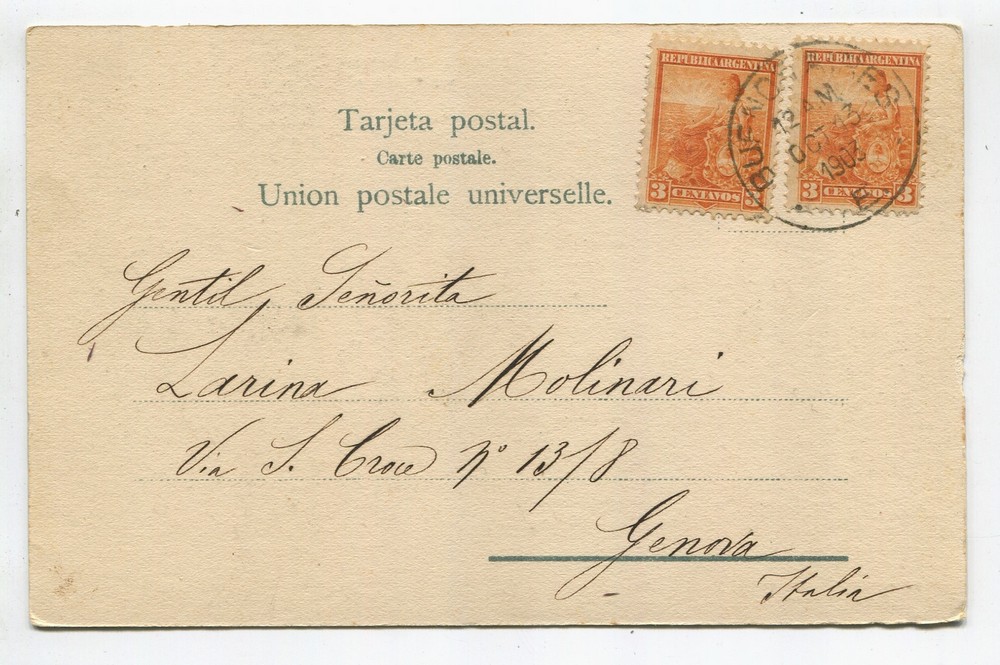 Tarjeta postal.
Carte postale.
Union postale universelle.
REPUBLICA ARGENTINA
3 CENTAVOS 3
REPUBLICA ARGENTINA
3 CENTAVOS 3
BUENOS AIRES
12 AM
OCT 13
1903
Gentil Señorita
Larina Molinari
Via S. Croce Nº 13/8
Genova
Italia